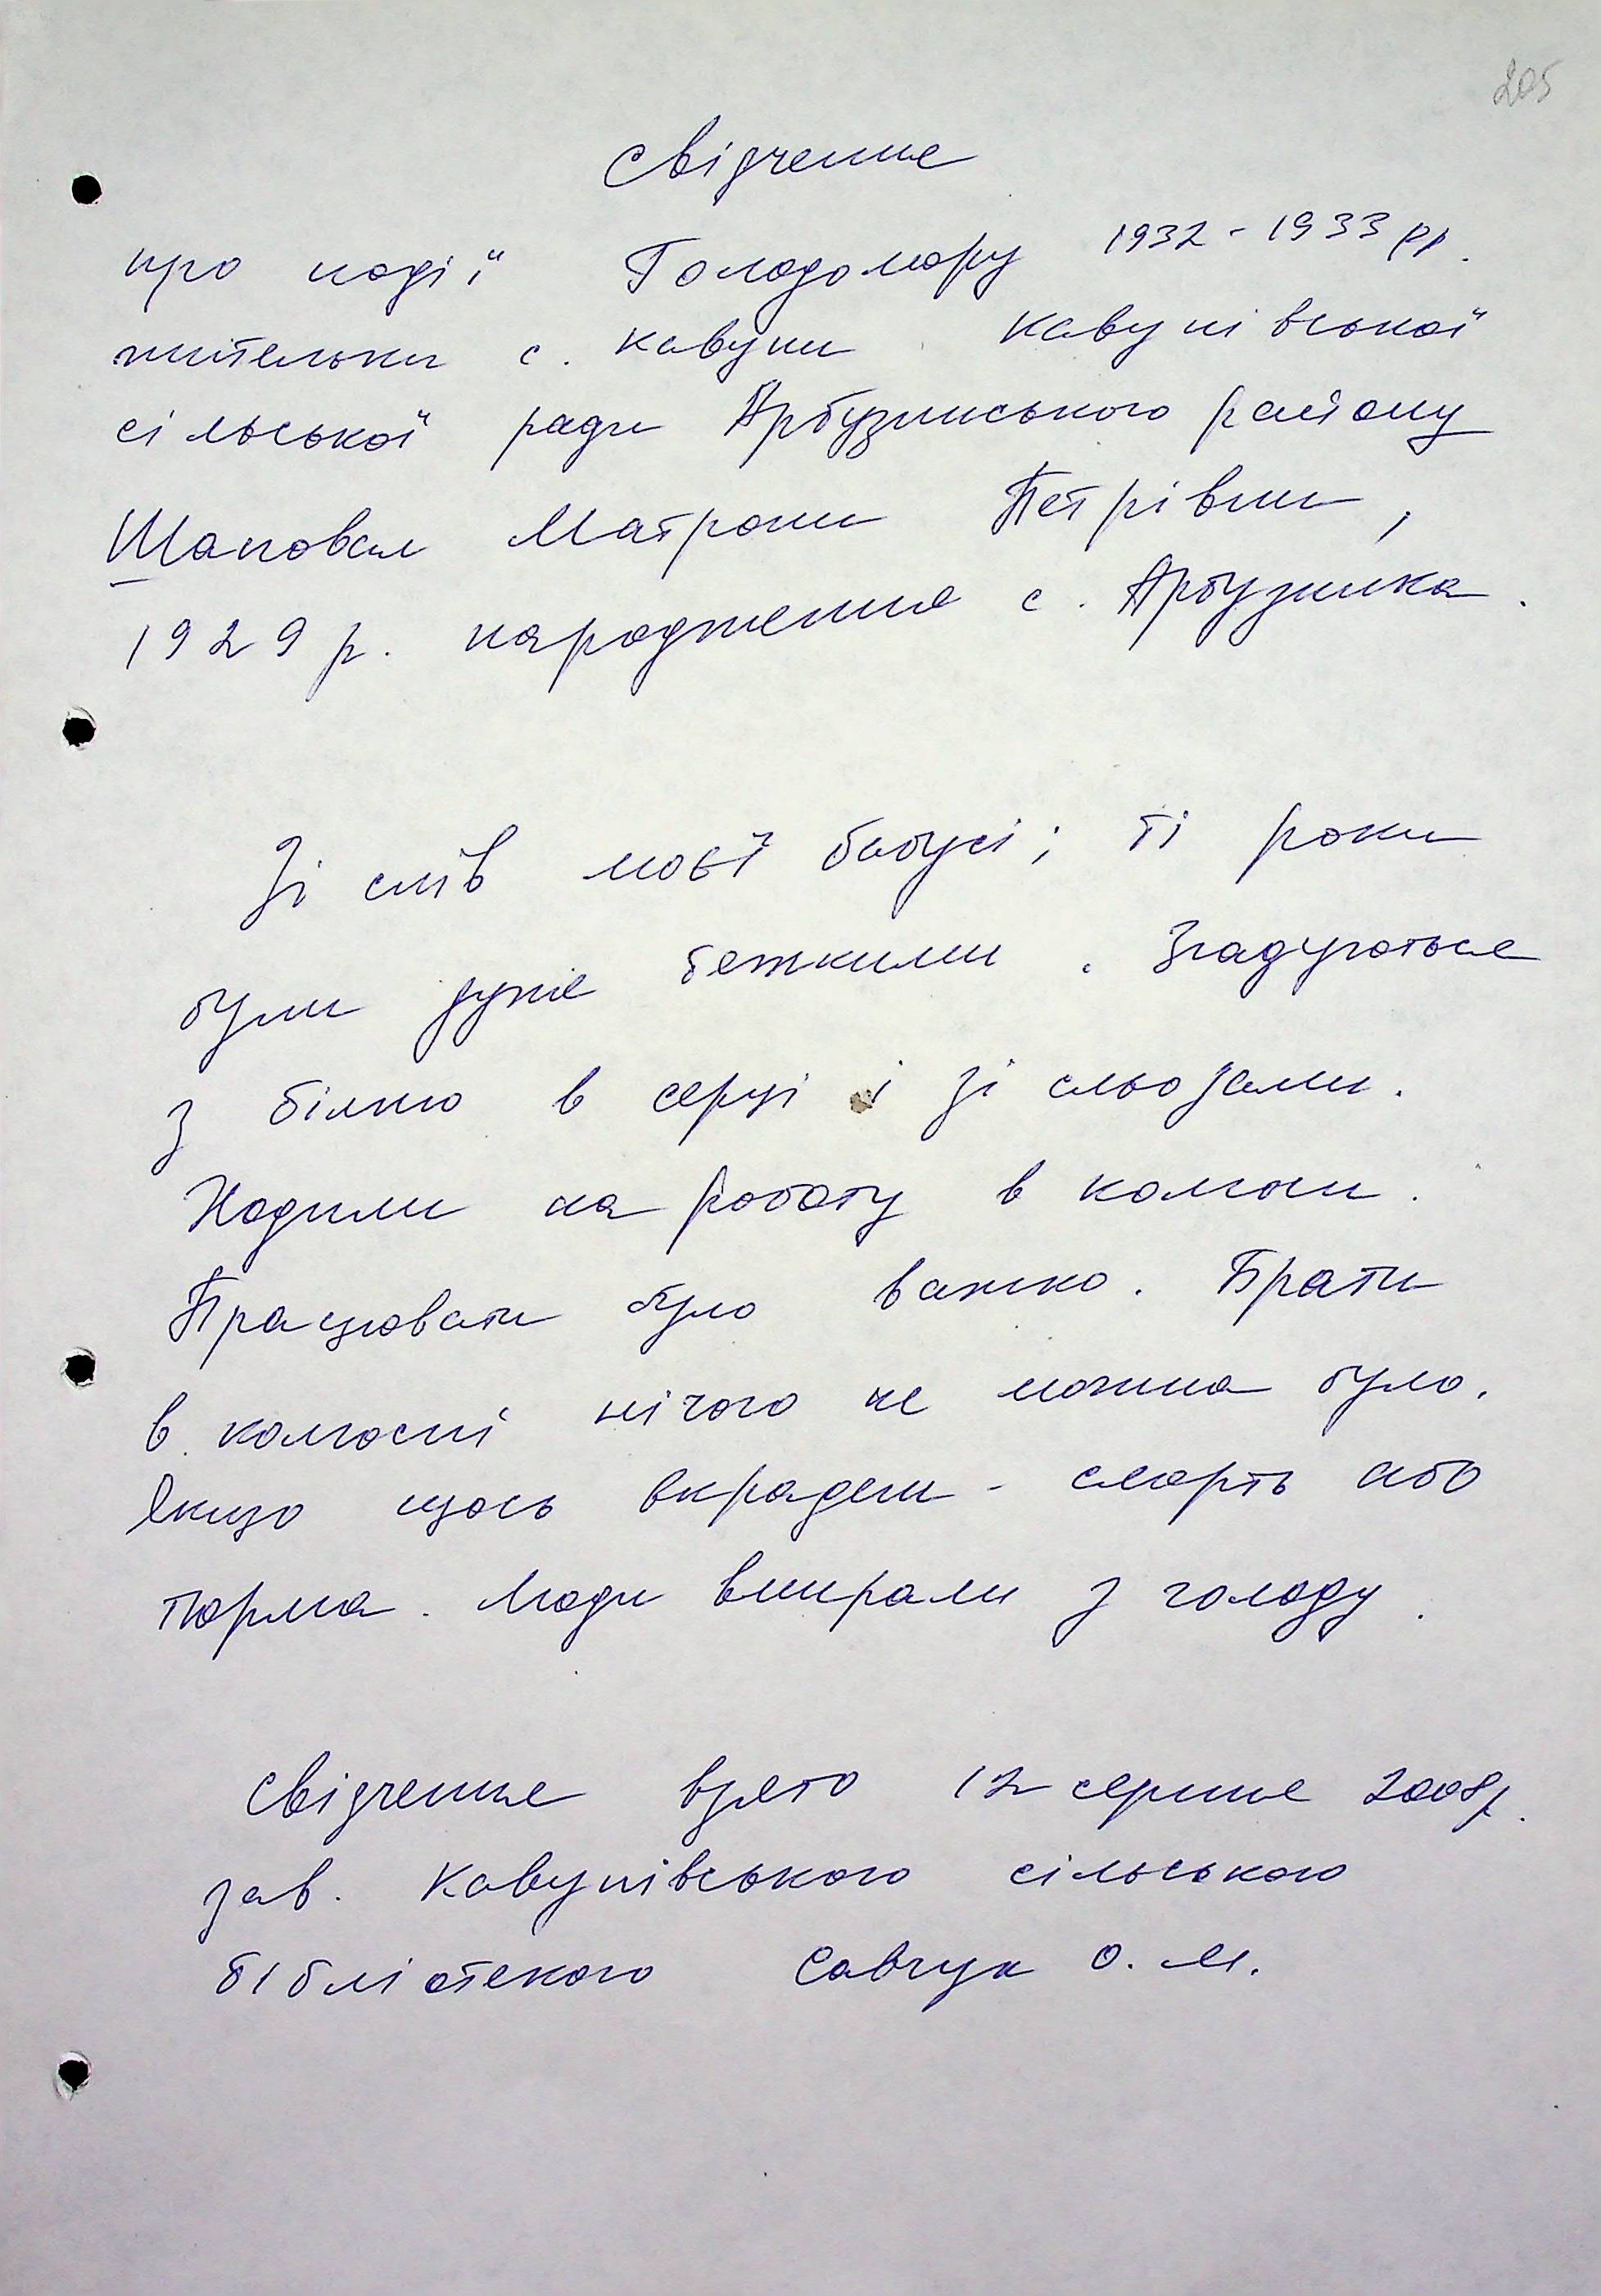 205
Свідчення
про події Голодомору 1932-1933 рр.
жительки с. Кавуни Кавунівської
сільської ради Арбузинського району
Шаповал Матрони Петрівни,
1929 р. народження с. Арбузинка.
Зі слів моєї бабусі; ті роки
були дуже тяжкими. Згадуються
з біллю в серці і зі сльозами.
Ходили на роботу в колгосп.
Працювати було важко. Брати
в колгоспі нічого не можна було.
Якщо щось вкрадеш - смерть або
тюрма. Люди вмирали з голоду.
Свідчення взято 12 серпня 2008р.
зав. Кавунівського сільського
бібліотекою Савчук О. М.